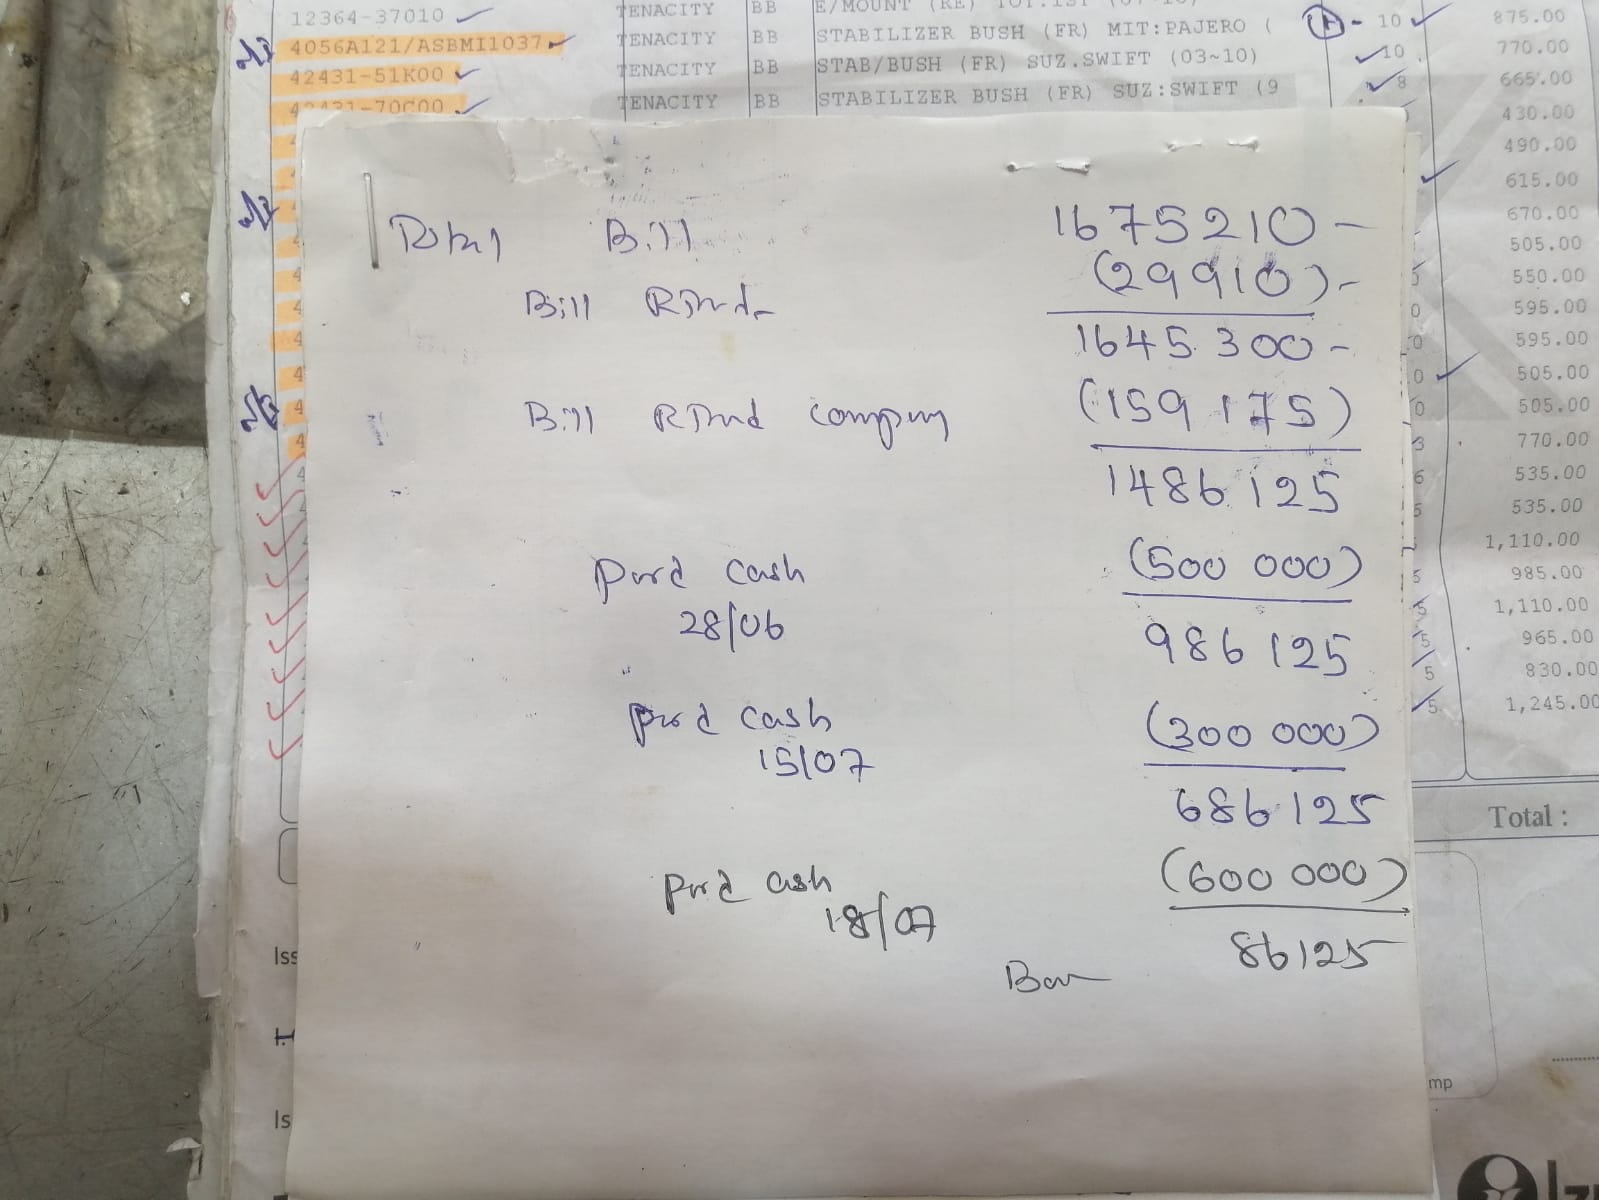 12364-37010 TENACITY BB E/MOUNT (RE) 10 875.00
4056A121/ASBMI1037 TENACITY BB STABILIZER BUSH (FR) MIT:PAJERO ( 10 770.00
42431-51K00 TENACITY BB STAB/BUSH (FR) SUZ.SWIFT (03~10) 8 665.00
42431-70C00 TENACITY BB STABILIZER BUSH (FR) SUZ:SWIFT (9 430.00
490.00
615.00
670.00
505.00
550.00
595.00
595.00
505.00
505.00
770.00
535.00
535.00
1,110.00
985.00
1,110.00
965.00
830.00
1,245.00
Total :
Total Bill 1675210-
Bill (29910)-
1645300-
Bill company (159175)
1486125
cash (500 000)
28/06
986125
cash (300 000)
15/07
686125
cash (600 000)
18/07
86125
Iss
Is
mp